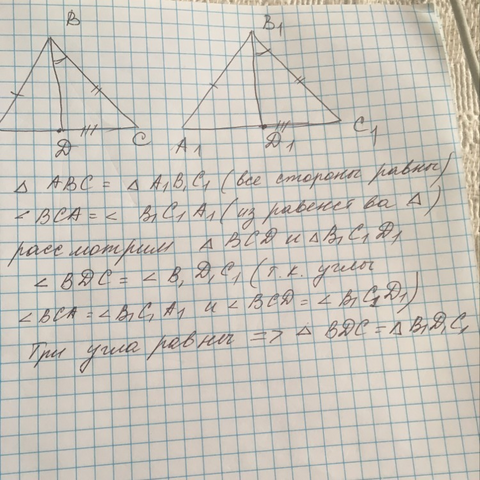 B B₁
D C A₁ D₁ C₁
△ ABC = △ A₁B₁C₁ (все стороны равны)
∠ BCA = ∠ B₁C₁A₁ (из равенства △)
рассмотрим △ BCD и △ B₁C₁D₁
∠ BDC = ∠ B₁D₁C₁ (т.к. углы
∠ BCA = ∠ B₁C₁A₁ и ∠ BCD = ∠ B₁C₁D₁)
Три угла равны => △ BDC = △ B₁D₁C₁